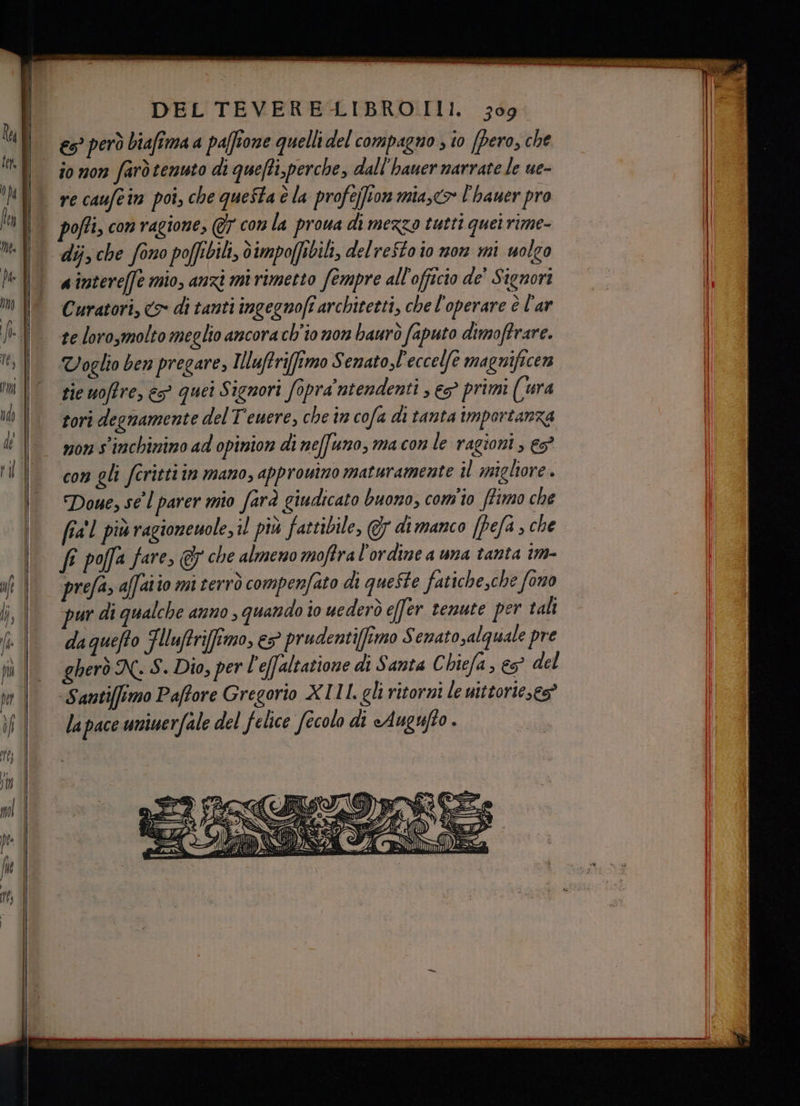 DEL TEVERE LIBRO III. 309
& però biaſima a paſſione quelli del compagno, io ſpero, che
io non ſarò tenuto di queſti, perche, dall'hauer narrate le ue-
re cauſe in poi, che queſta è la profeſſion mia, & l'hauer pro
poſti, con ragione, & con la proua di mezzo tutti quei rime-
dij, che ſono poſſibili, ò impoſſibili, del reſto io non mi uolgo
a intereſſe mio, anzi mi rimetto ſempre all'officio de' Signori
Curatori, & di tanti ingegnoſi architetti, che l'operare è l'ar
te loro, molto meglio ancora ch'io non haurò ſaputo dimoſtrare.
Voglio ben pregare, Illuſtriſſimo Senato, l'eccelſe magnificen
tie uoſtre, & quei Signori ſopra'ntendenti, & primi Cura
tori degnamente del Teuere, che in coſa di tanta importanza
non s'inchinino ad opinion di neſſuno, ma con le ragioni, &
con gli ſcritti in mano, approuino maturamente il migliore.
Doue, se'l parer mio ſarà giudicato buono, com'io ſtimo che
ſia'l più ragioneuole, il più fattibile, & di manco ſpeſa, che
ſi poſſa fare, & che almeno moſtra l'ordine a una tanta im-
preſa, aſſai io mi terrò compenſato di queſte fatiche, che ſono
pur di qualche anno, quando io uederò eſſer tenute per tali
da queſto Illuſtriſſimo, & prudentiſſimo Senato, al quale pre
gherò N. S. Dio, per l'eſſaltatione di Santa Chieſa, & del
Santiſſimo Paſtore Gregorio XIII. gli ritorni le uittorie, &
la pace uniuerſale del felice ſecolo di Auguſto.